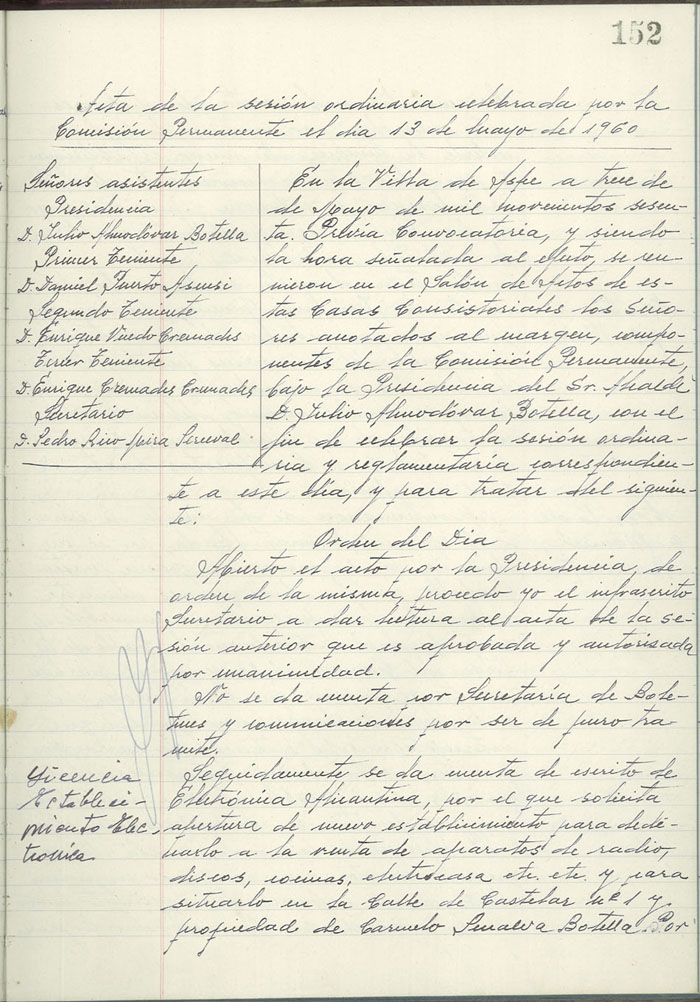 152
Acta de la sesión ordinaria celebrada por la
Comisión Permanente el dia 13 de Mayo de 1960
Señores asistentes
Presidencia
D. Julio Almodóvar Botella
Primer Teniente
D. Daniel Puerto Asensi
Segundo Teniente
D. Enrique Vuedo Cremades
Tercer Teniente
D. Enrique Cremades Cremades
Secretario
D. Pedro Rico Mira Perceval
En la Villa de Aspe a trece de
de Mayo de mil novecientos sesen-
ta. Previa Convocatoria, y siendo
la hora señalada al efecto, se reu-
nieron en el Salón de Actos de es-
tas Casas Consistoriales los Seño-
res anotados al margen, compo-
nentes de la Comisión Permanente,
bajo la Presidencia del Sr. Alcalde
D. Julio Almodóvar Botella, con el
fin de celebrar la sesión ordina-
ria y reglamentaria correspondien-
te a este día, y para tratar del siguien-
te:
Orden del Dia
Abierto el acto por la Presidencia, de
orden de la misma, procedo yo el infrascrito
Secretario a dar lectura al acta de la se-
sión anterior que es aprobada y autorizada
por unanimidad.
No se da cuenta por Secretaría de Bole-
tines y comunicaciones por ser de puro tra-
mite.
Licencia
Estableci-
miento Elec-
tronica
Seguidamente se da cuenta de escrito de
Eletrónica Alicantina, por el que solicita
apertura de nuevo establicimiento para dedi-
carlo a la venta de aparatos de radio,
discos, cocinas, electrocasa etc. etc. y para
situarlo en la Calle de Castelar nº 1 y
propiedad de Carmelo Botella. Por